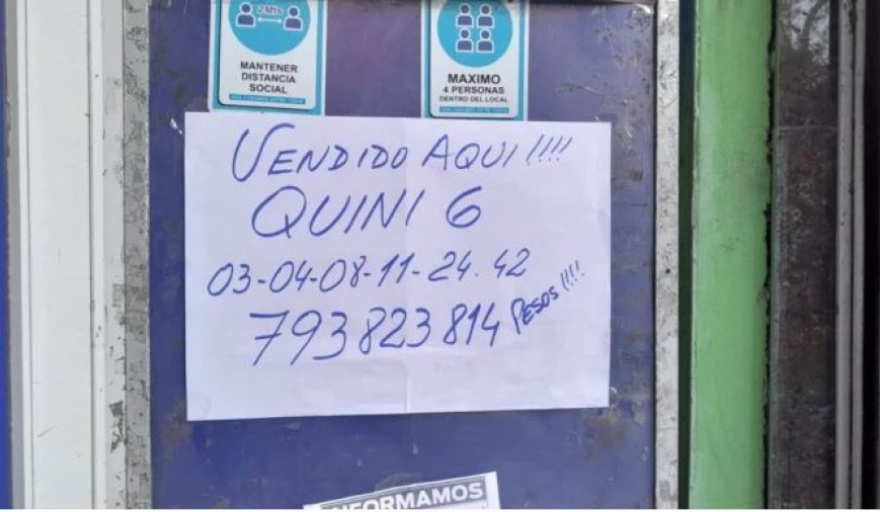 2 Mts
MANTENER
DISTANCIA
SOCIAL
MAXIMO
4 PERSONAS
DENTRO DEL LOCAL
VENDIDO AQUI!!!!
QUINI 6
03-04-08-11-24.42
793823814 PESOS!!!!
INFORMAMOS